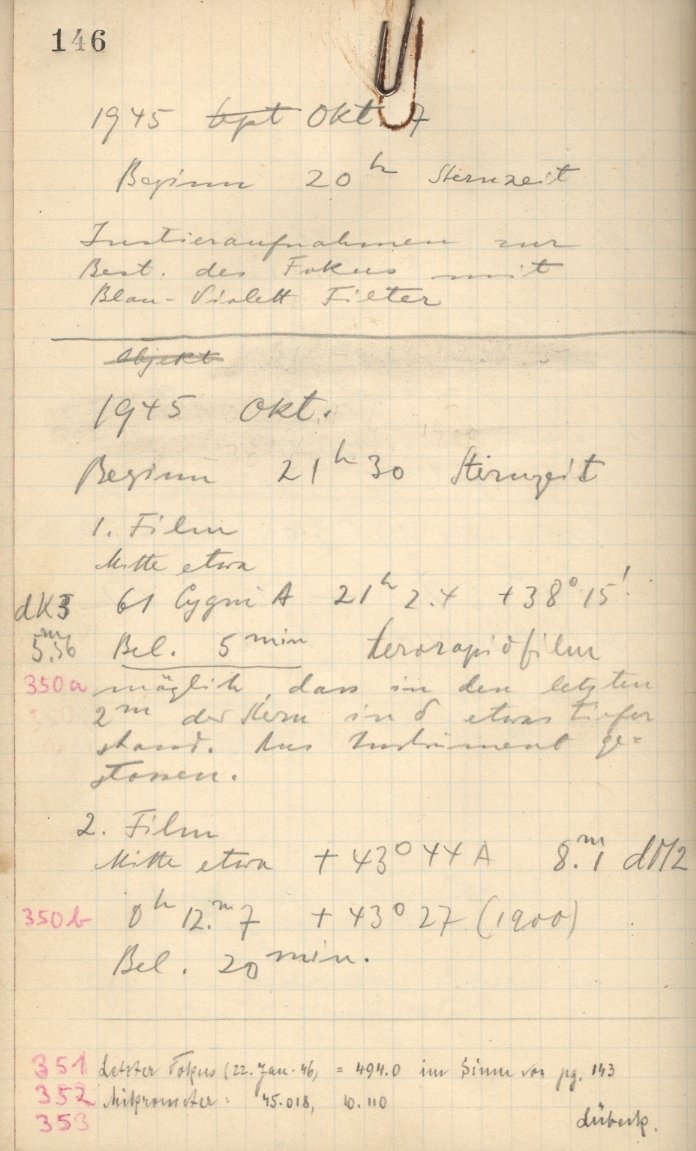 146
1945 Sept Okt. 7
Beginn 20h Sternzeit
Justieraufnahmen zur
Best. des Fokus mit
Blau-Violett Filter
Objekt
1945 Okt.
Beginn 21h 30 Sternzeit
1. Film
Mitte etwa
dK3 61 Cygni A 21h 2.4 +38° 15'
5.m56 Bel. 5 min
350a möglich, dass in den letzten
2m der Stern in δ etwas tiefer
stand. Ans Instrument ge-
stossen.
2. Film
Mitte etwa +43° 44 A 8.m1 dM2
350b 0h 12.m7 +43° 27 (1900)
Bel. 20 min.
351 Letzter Fokus (22. Jan. 46) = 494.0 im Sinne von pg. 143
352 Mikrometer: 45.018, 10.110
353